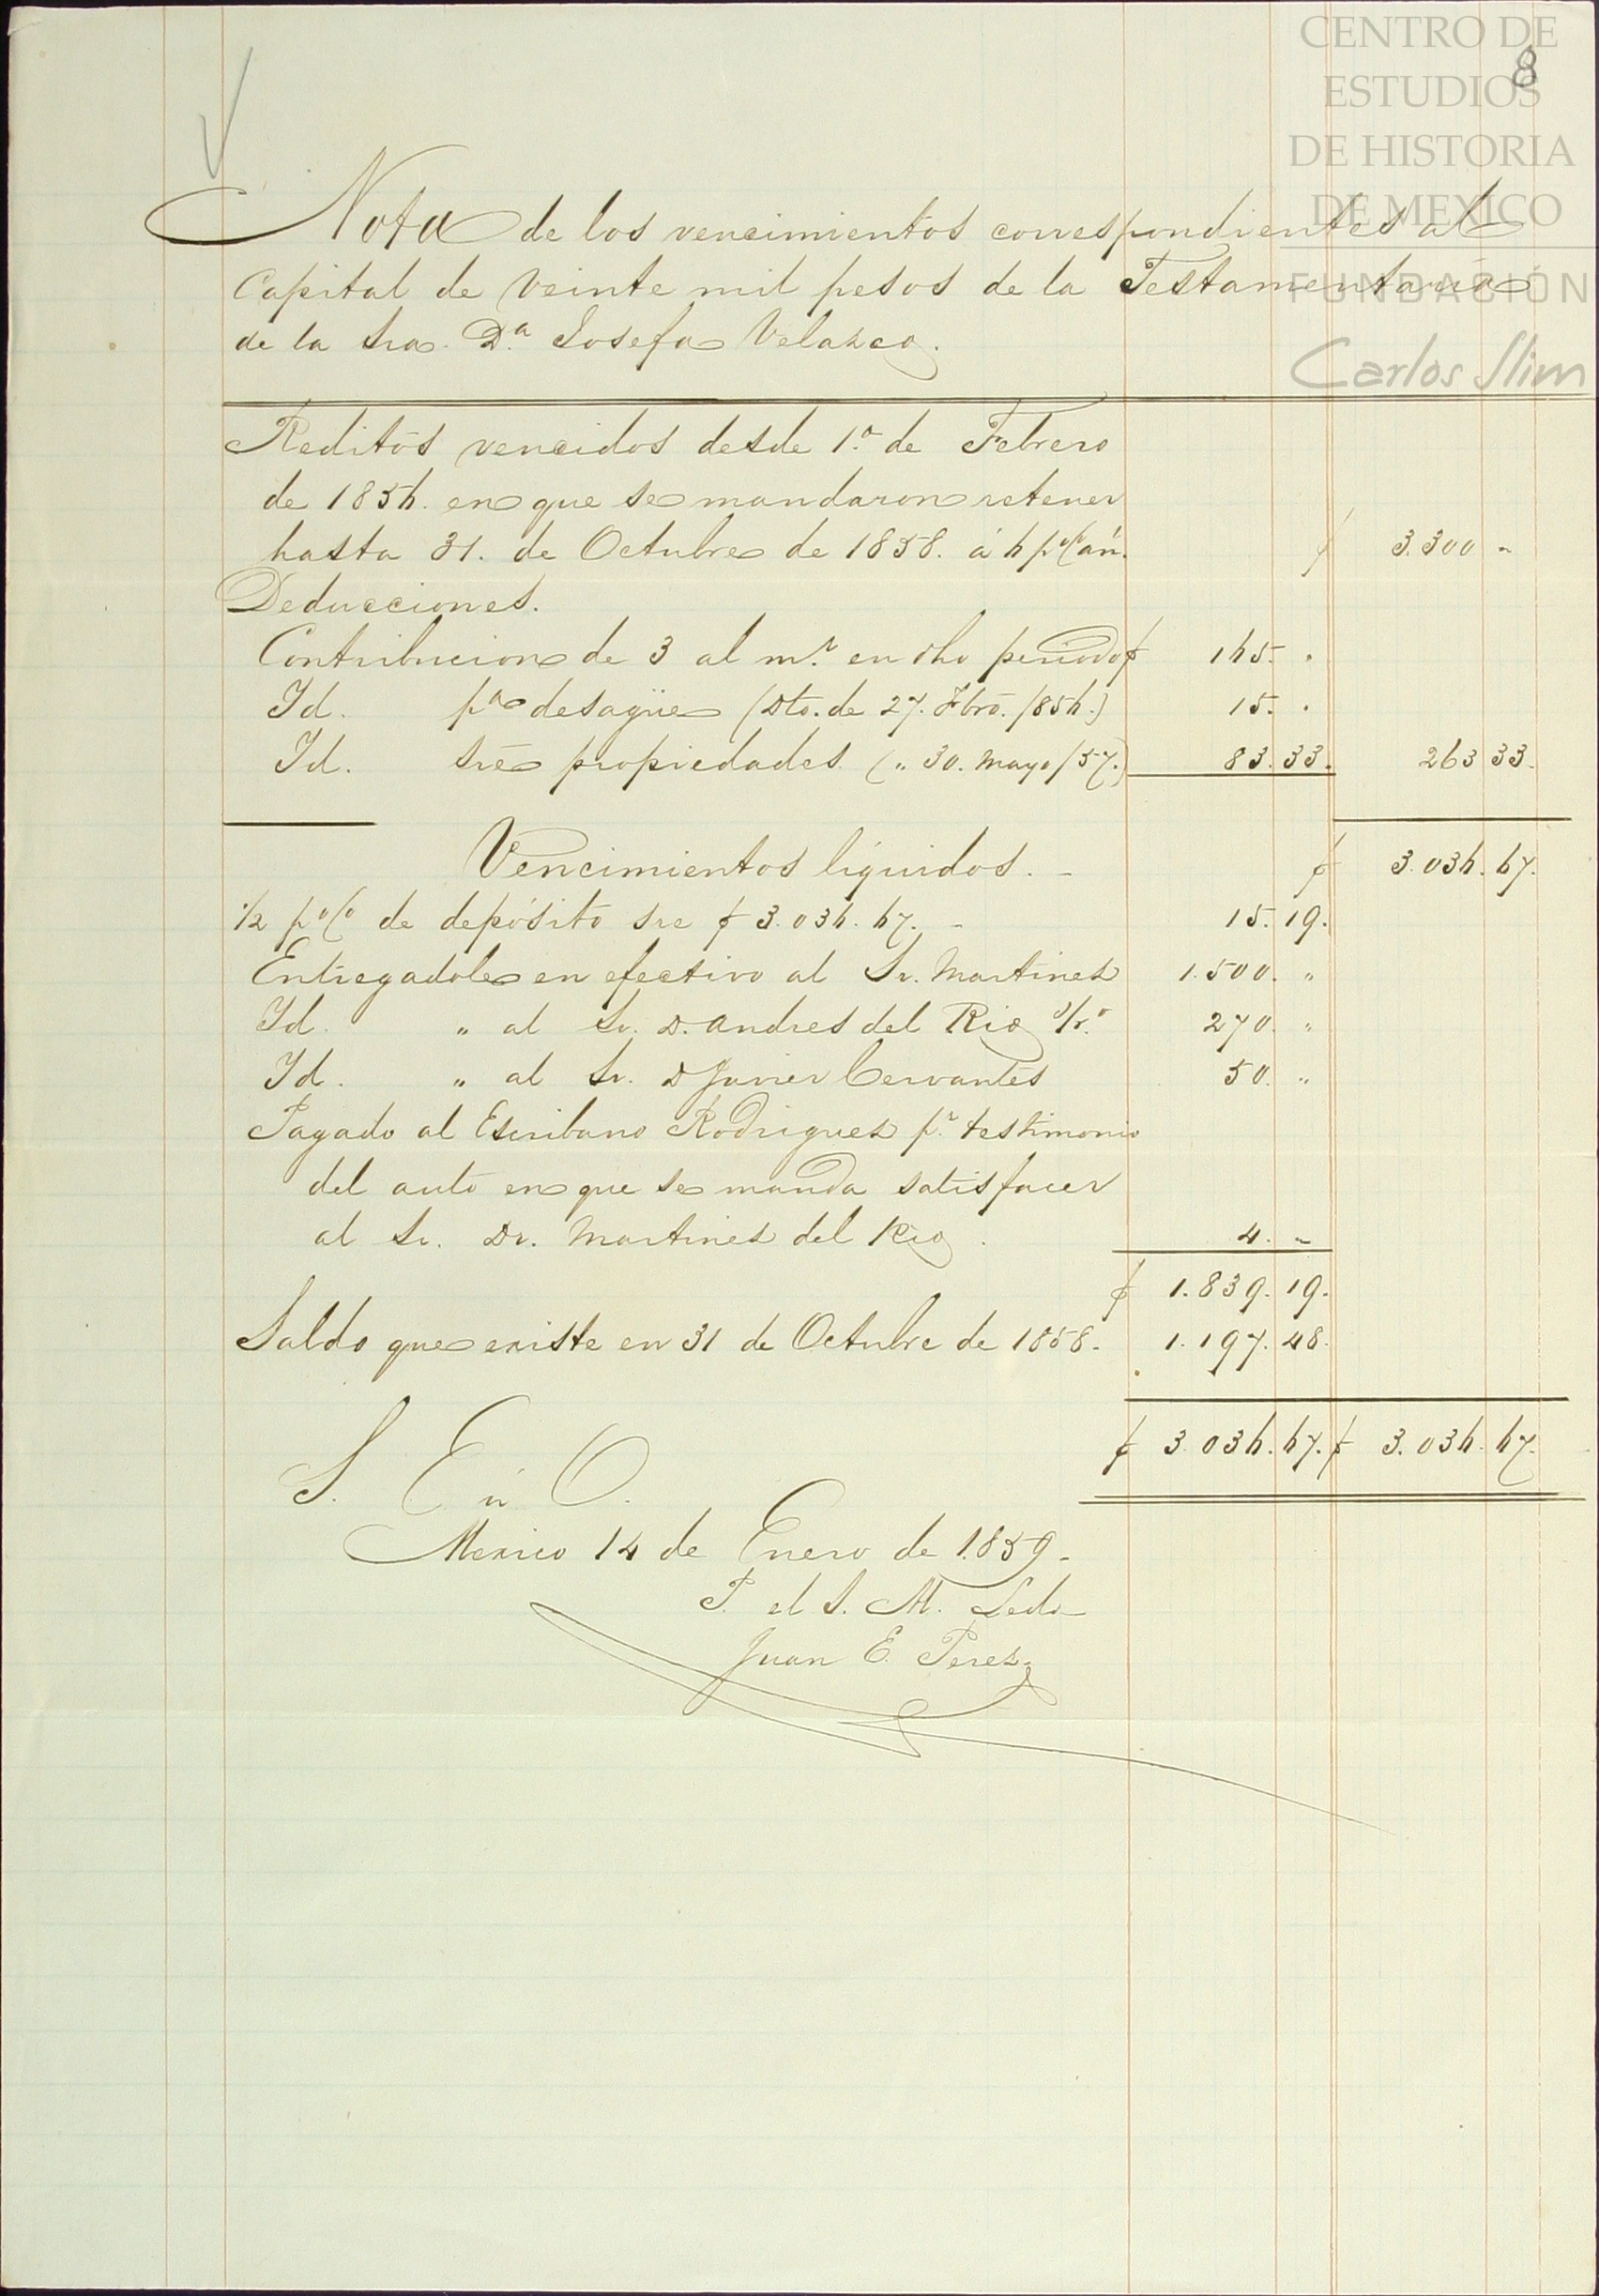 CENTRO DE
ESTUDIOS
DE HISTORIA
DE MEXICO
FUNDACIÓN
Carlos Slim
8
Nota de los vencimientos correspondientes al
Capital de Veinte mil pesos de la Testamentaria
de la Sra. D.ª Josefa Velazco.
Reditos vencidos desde 1.º de Febrero
de 1856. en que se mandaron retener
hasta 31. de Octubre de 1858. á 6 p% an. $ 3.300 "
Deducciones.
Contribucion de 3 al m.r en dho periodo $ 165. "
Id. pª desagüe (Dto. de 27. Fbro. /856.) 15. "
Id. sre propiedades (" 30. Mayo /57.) 83.33. 263 33.
Vencimientos líquidos. $ 3.036.67.
1/2 p% de depósito sre $ 3.036.67. 15.19.
Entregadole en efectivo al Sr. Martinez 1.500. "
Id. " al Sr. D. Andres del Rio 270. "
Id. " al Sr. D Javier Cervantes 50. "
Pagado al Escribano Rodriguez p.r testimonio
del auto en que se manda satisfacer
al Sr. Dr. Martinez del Rio. 4. "
$ 1.839.19.
Saldo que existe en 31 de Octubre de 1858. 1.197.48.
$ 3.036.67. $ 3.036.67.
S. E ú O.
Mexico 14 de Enero de 1859.
P. el S. M. Ledo
Juan E. Perez